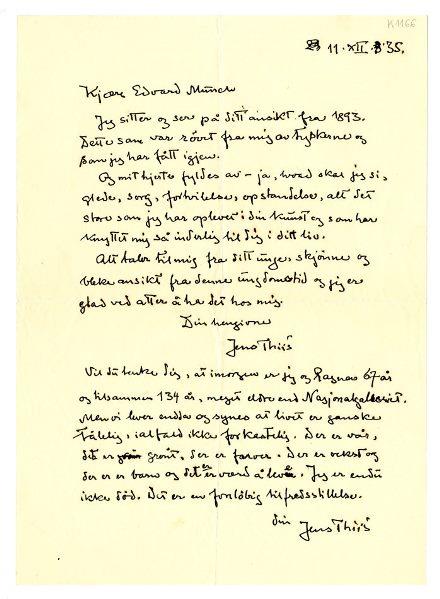 K1166
11. XII 35.
Kjære Edvard Munch
Jeg sitter og ser på ditt ansikt fra 1893.
Dette som var røvet fra mig av tyskerne og
som jeg har fått igjen.
Og mit hjerte fyldes av – ja, hvad skal jeg si,
glede, sorg, fortvilelse, opstandelse, alt det
store som jeg har oplevet i din kunst og som har
knyttet mig så inderlig til dig i ditt liv.
Alt taler til mig fra ditt unge, skjønne og
bleke ansikt fra denne ungdomstid og jeg er
glad ved atter å ha det hos mig.
Din hengivne
Jens Thiis
Vil du tenke dig, at imorgen er jeg og Ragna 67 år
og tilsammen 134 år, meget eldre end Nasjonalgalleriet.
Men vi lever endda og synes at livet er ganske
tålelig, ialfald ikke forkastelig. Der er vår,
det er grønt, der er farver. Der er vekst og
der er barn og det er værd å leve. Jeg er endu
ikke død. Det er en foreløbig tilfredsstillelse.
din
Jens Thiis